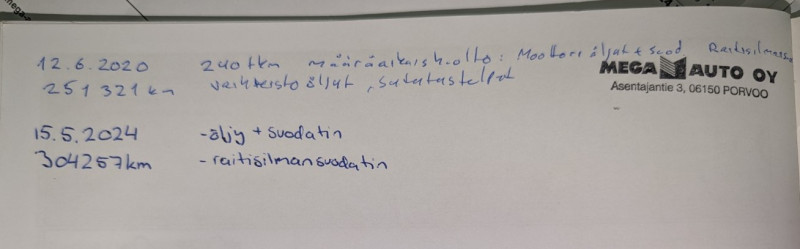 12.6.2020 240tkm määräaikaishuolto: Moottoriöljyt + suod. Raitisilmas.
251 321 km vaihteisto öljyt,
MEGA AUTO OY
Asentajantie 3, 06150 PORVOO
15.5.2024 -öljy + suodatin
304257km -raitisilmansuodatin